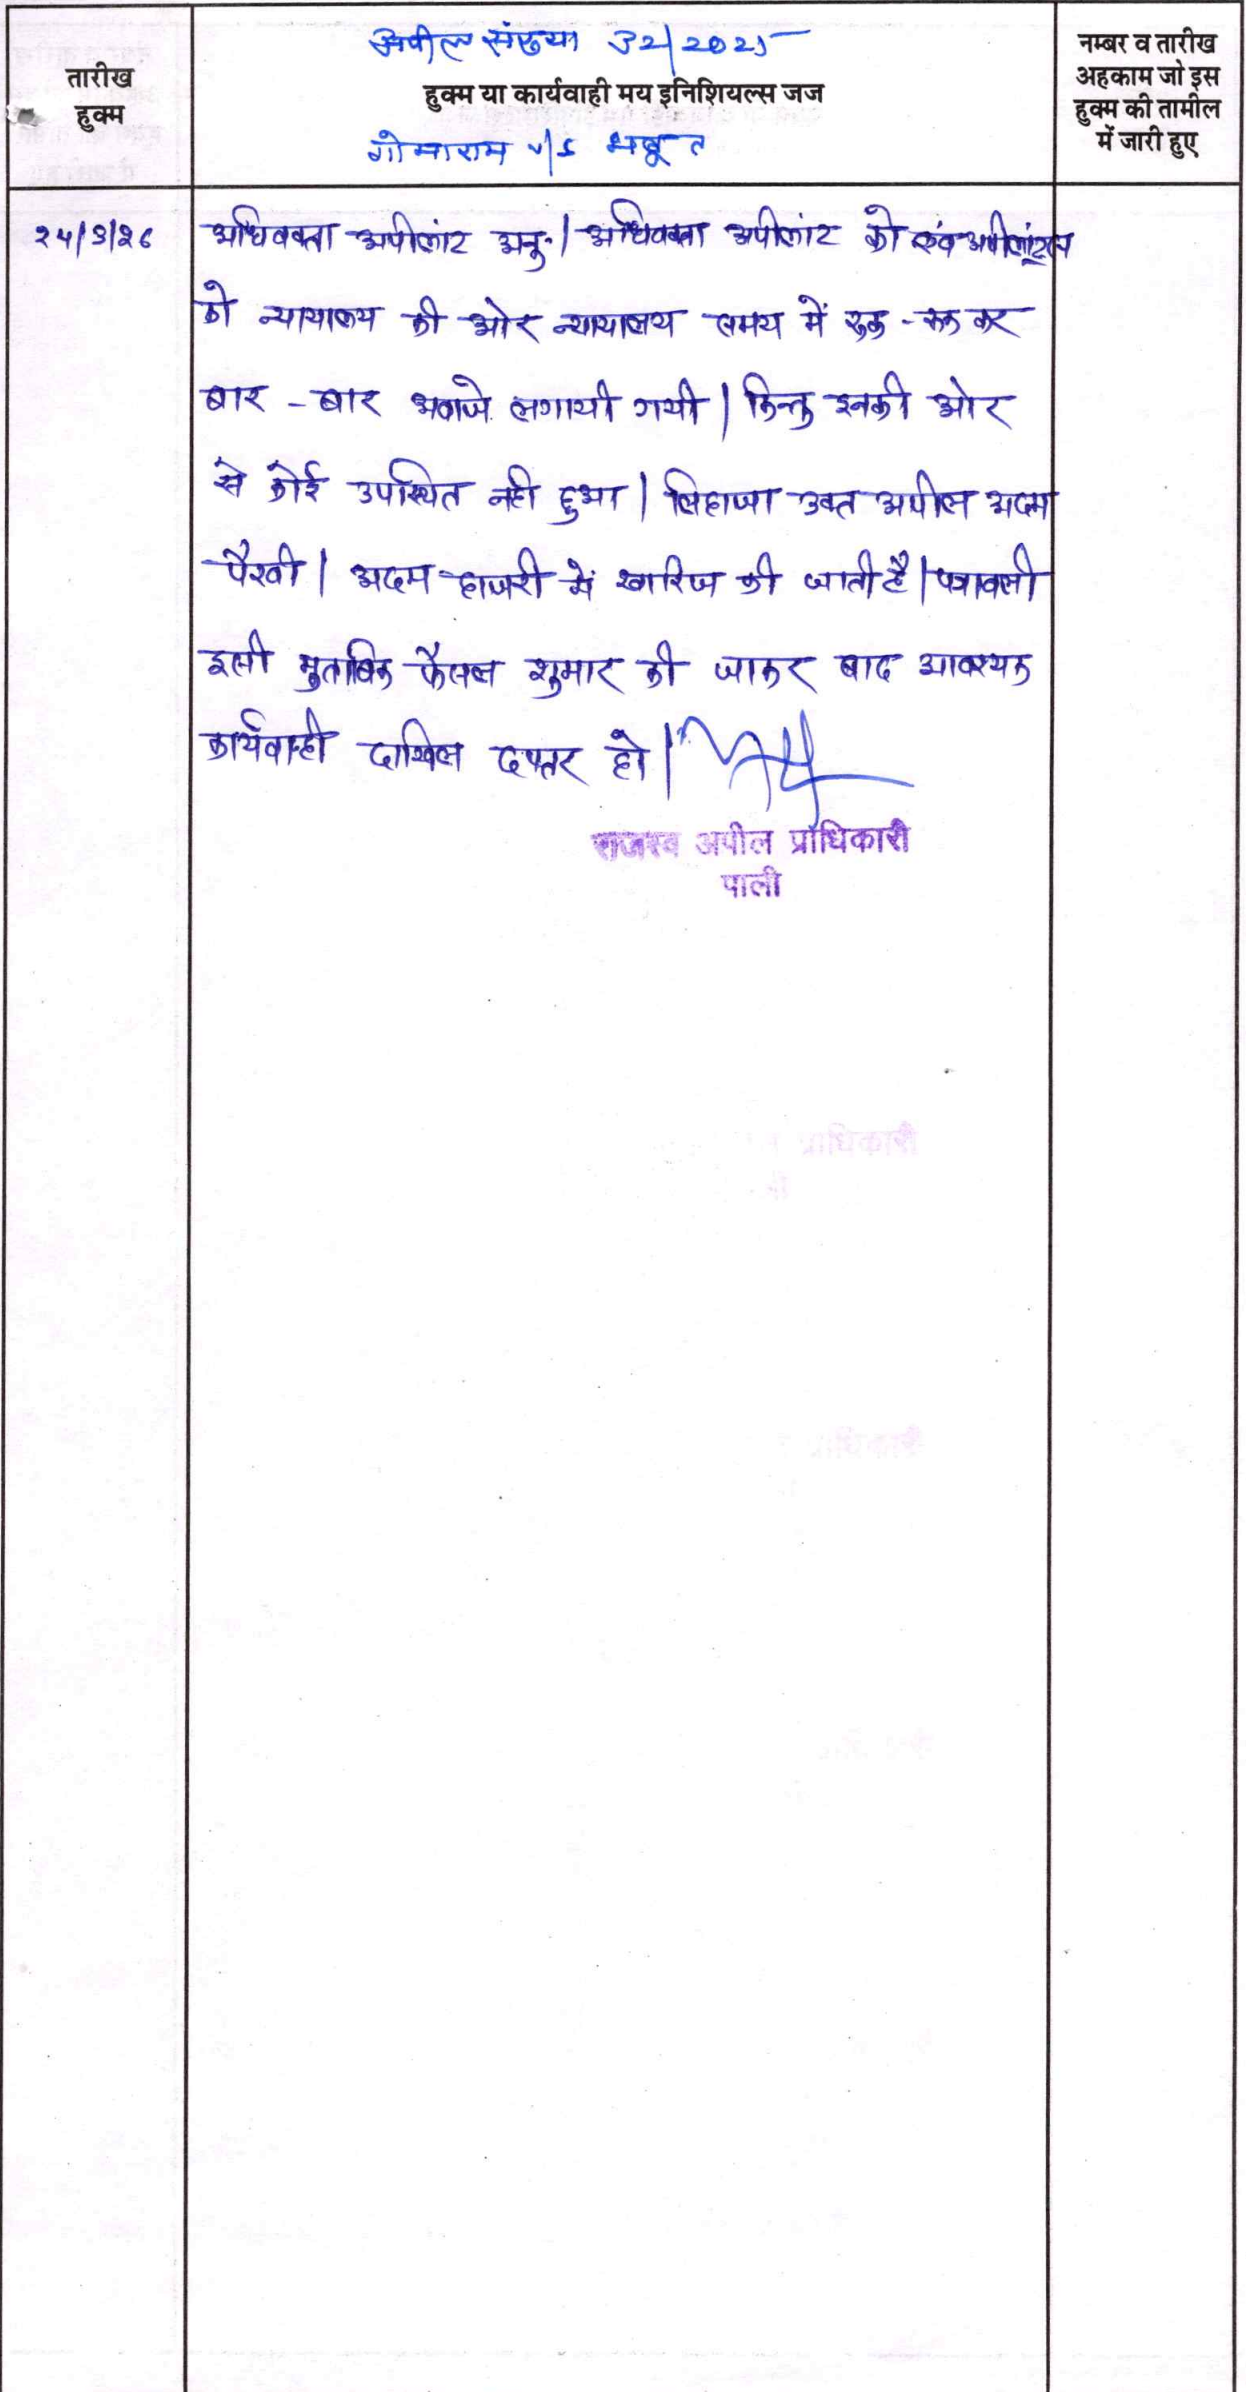 अपील संख्या 32/2025
तारीख
हुक्म
हुक्म या कार्यवाही मय इनिशियल्स जज
गोमाराम v/s भबूत
नम्बर व तारीख
अहकाम जो इस
हुक्म की तामील
में जारी हुए
अधिवक्ता अपीलांट अनु॰। अधिवक्ता अपीलांट को एवं अपीलांट्स
को न्यायालय की ओर न्यायालय समय में रुक - रुक कर
बार - बार आवाजे लगायी गयी। किन्तु इनकी ओर
से कोई उपस्थित नही हुआ। लिहाजा उक्त अपील अदम
पैरवी। अदम हाजरी में खारिज की जाती है। पत्रावली
इसी मुताबिक फैसल शुमार की जाकर बाद आवश्यक
कार्यवाही दाखिल दफ्तर हो।
राजस्व अपील प्राधिकारी
पाली